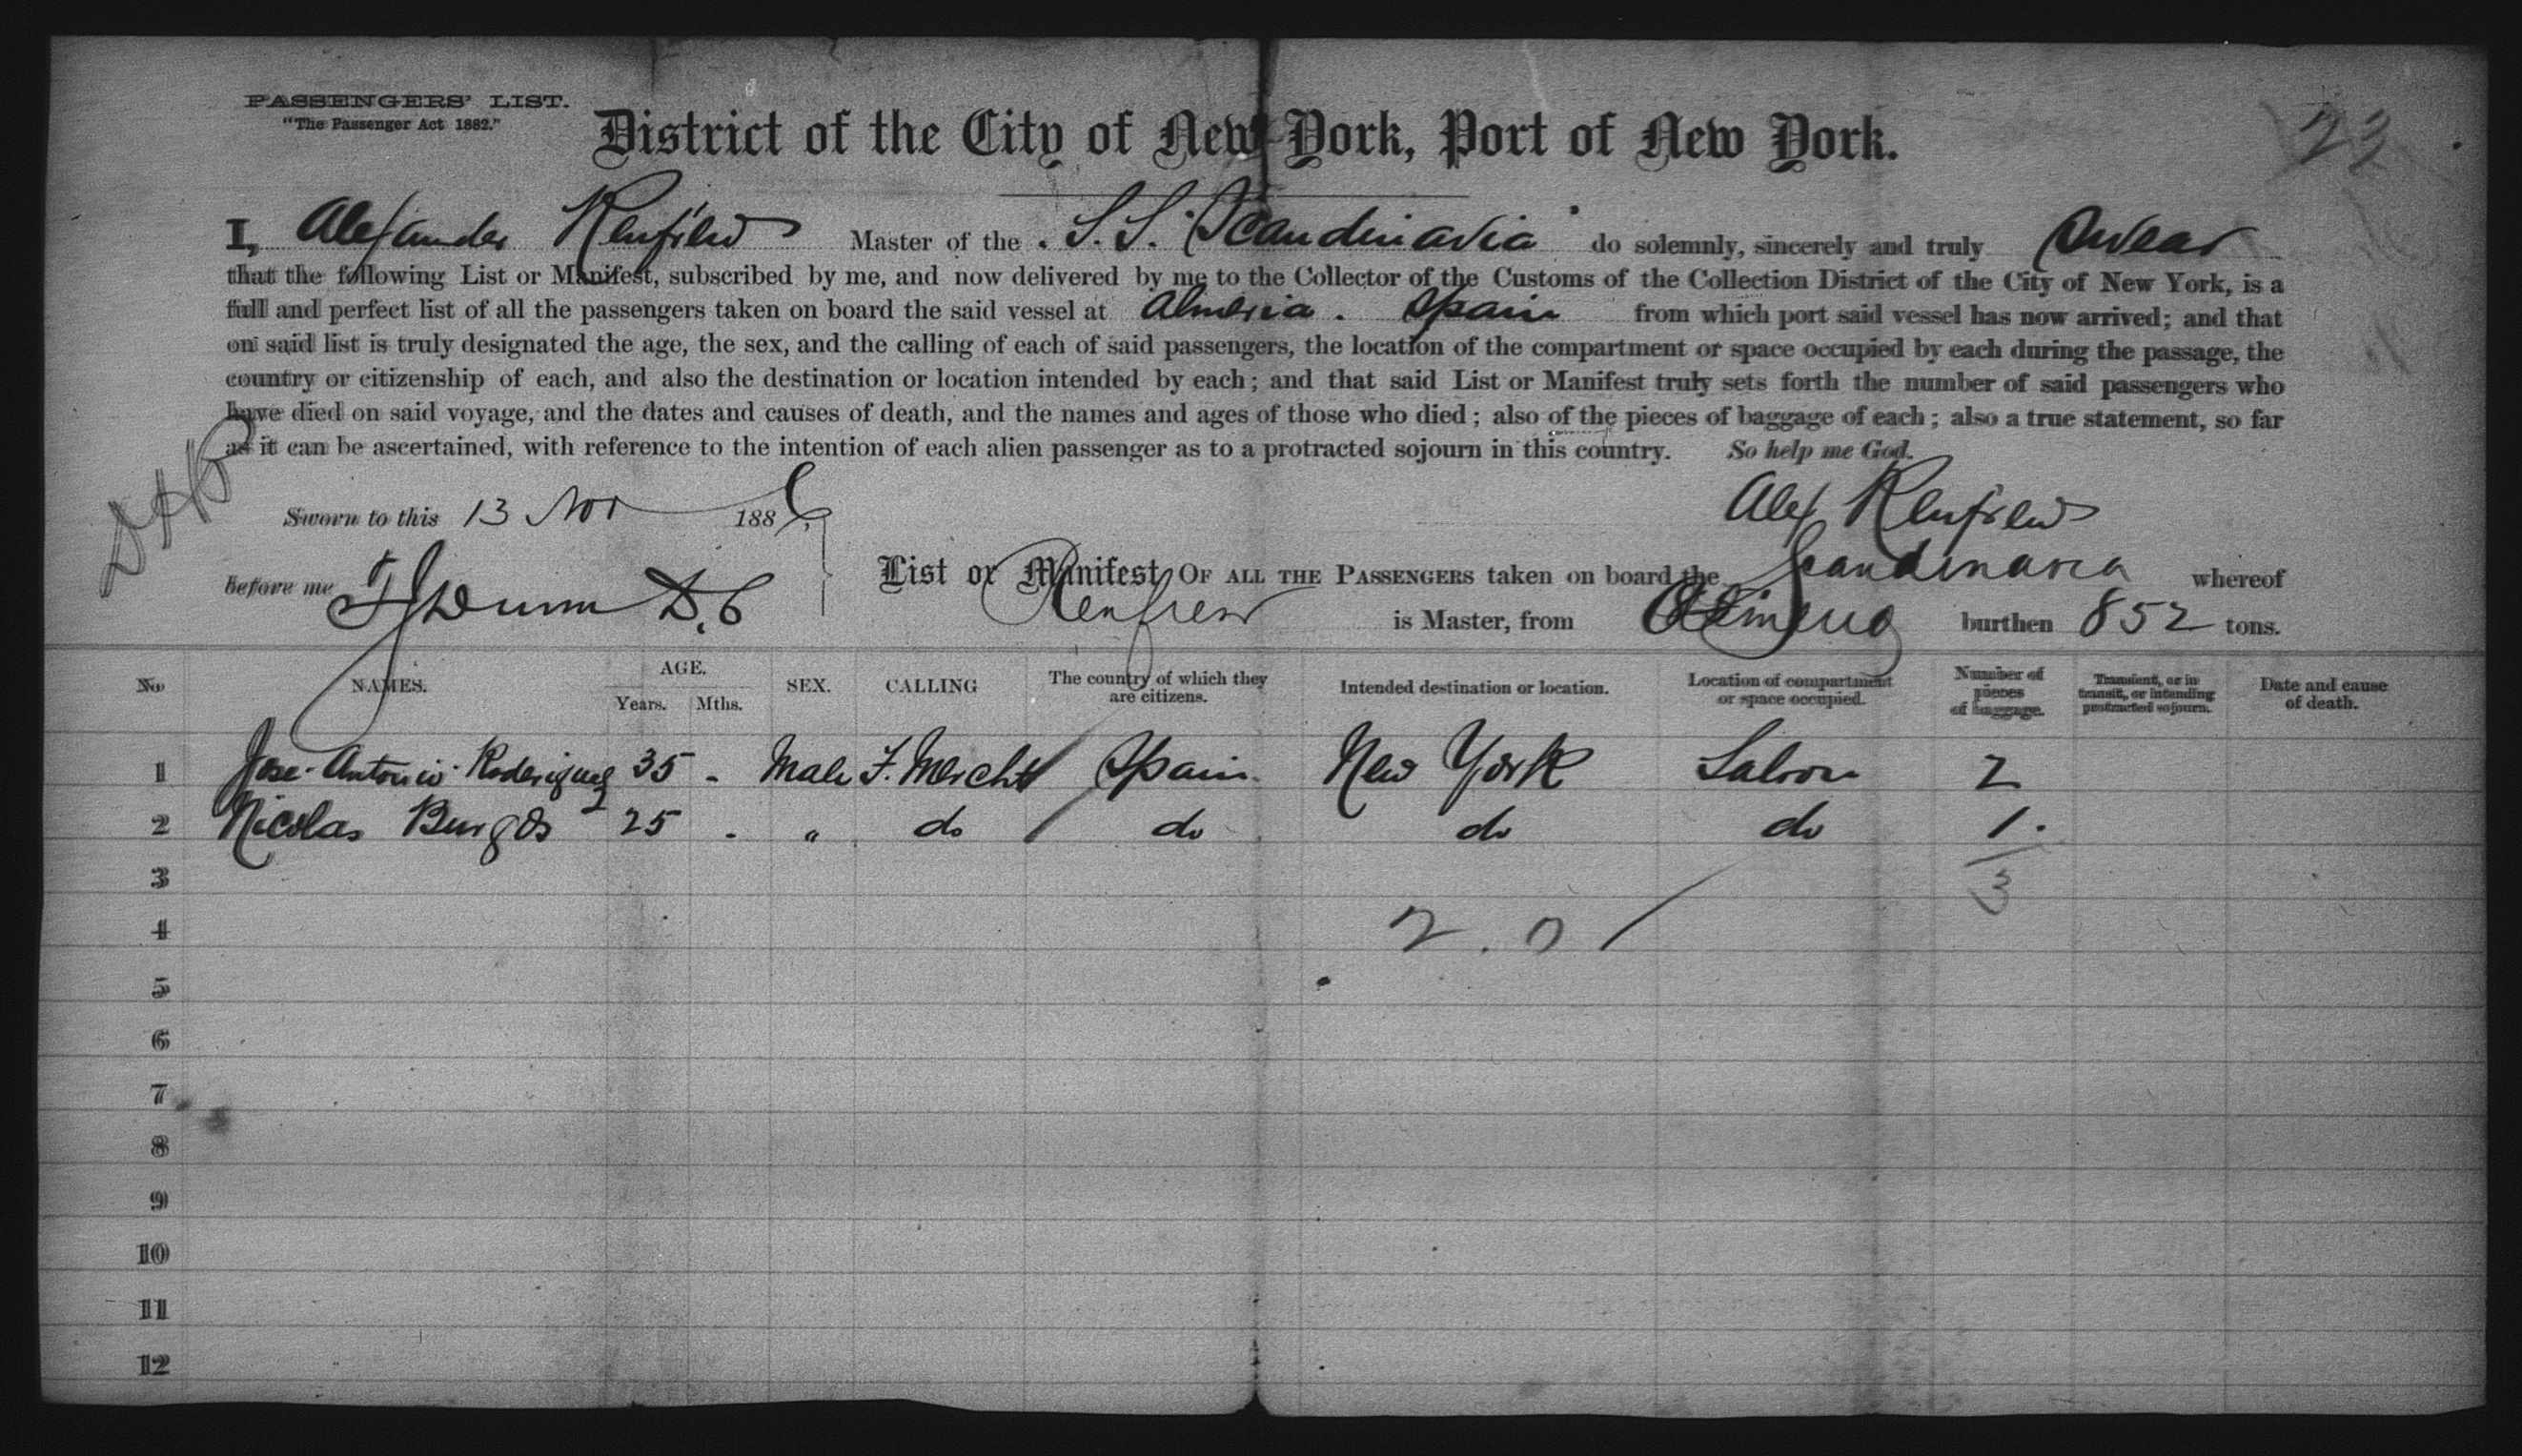 PASSENGERS' LIST.
"The Passenger Act 1882."
District of the City of New York, Port of New York.
23
I, Alexander Renfrew Master of the S.S. "Scandinavia" do solemnly, sincerely and truly Swear
that the following List or Manifest, subscribed by me, and now delivered by me to the Collector of the Customs of the Collection District of the City of New York, is a
full and perfect list of all the passengers taken on board the said vessel at Almeria. Spain from which port said vessel has now arrived; and that
on said list is truly designated the age, the sex, and the calling of each of said passengers, the location of the compartment or space occupied by each during the passage, the
country or citizenship of each, and also the destination or location intended by each; and that said List or Manifest truly sets forth the number of said passengers who
have died on said voyage, and the dates and causes of death, and the names and ages of those who died; also of the pieces of baggage of each; also a true statement, so far
as it can be ascertained, with reference to the intention of each alien passenger as to a protracted sojourn in this country. So help me God.
Sworn to this 13 Nov 1886 Alex Renfrew
before me Dunn D.C
List or Manifest OF ALL THE PASSENGERS taken on board the Scandinavia whereof
Renfrew is Master, from Almeria burthen 852 tons.
No NAMES. AGE. Years. Mths. SEX. CALLING The country of which they are citizens. Intended destination or location. Location of compartment or space occupied. Number of pieces of baggage. Transient, or in transit, or intending protracted sojourn. Date and cause of death.
1 Jose Antonio Roderiguez 35 - Male F. Mercht Spain New York Saloon 2
2 Nicolas Burgos 25 - " do do do do 1.
3 3
4 2.0
5
6
7
8
9
10
11
12